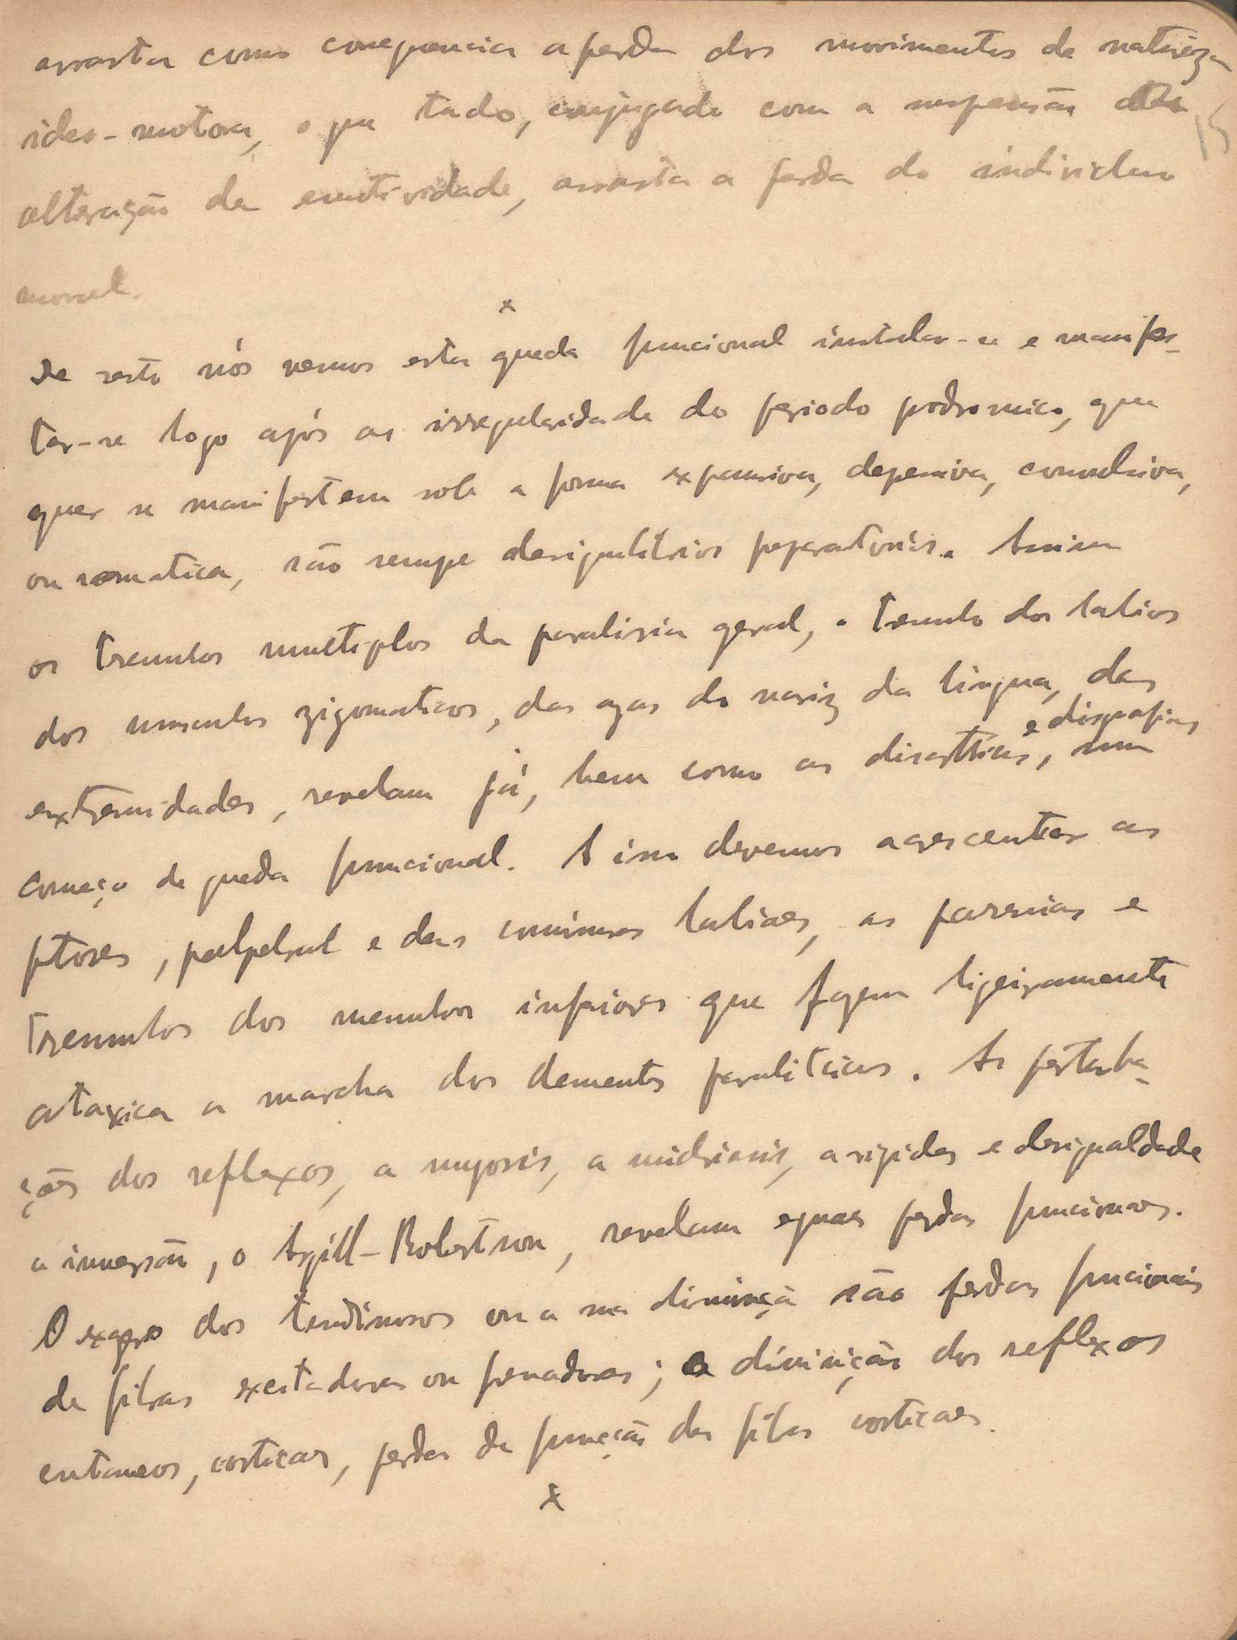 arrasta como consequencia a perda dos movimentos de natureza
ideo-motora, o que tudo, conjugado com a suspensão
alteração da emotividade, arrasta a perda do individuo
moral.
x
De resto nós vemos esta queda funcional instalar-se e manifes-
tar-se logo após as irregularidade do periodo prodromico, que
quer se manifestem sob a forma expansiva, depressiva, convulsiva,
ou somatica, são sempre desiquilibrios preparatorios. Assim
os tremulos multiplos da paralisia geral, o tremulo dos labios
dos musculos zigomaticos, das azas do nariz da lingua, das
e disgrafias
extremidades, revelam já, bem como as disartrias, um
começo de queda funcional. A isso devemos acrescentar as
ptoses, palpebral e das comissuras labiaes, as paresias e
tremulos dos membros inferiores que fazem ligeiramente
ataxica a marcha dos dementes paraliticos. As perturba-
ções dos reflexos, a myosis, a midriasis, a rigidez e desigualdade
a inversão, o Argill-Robertson, revelam eguaes perdas funcionaes.
O exagero dos tendinosos ou a sua diminuição são perdas funcionais
de fibras excitadoras ou frenadoras; a diminição dos reflexos
cutaneos, corticaes, perdas de funcção das fibras corticaes.
x